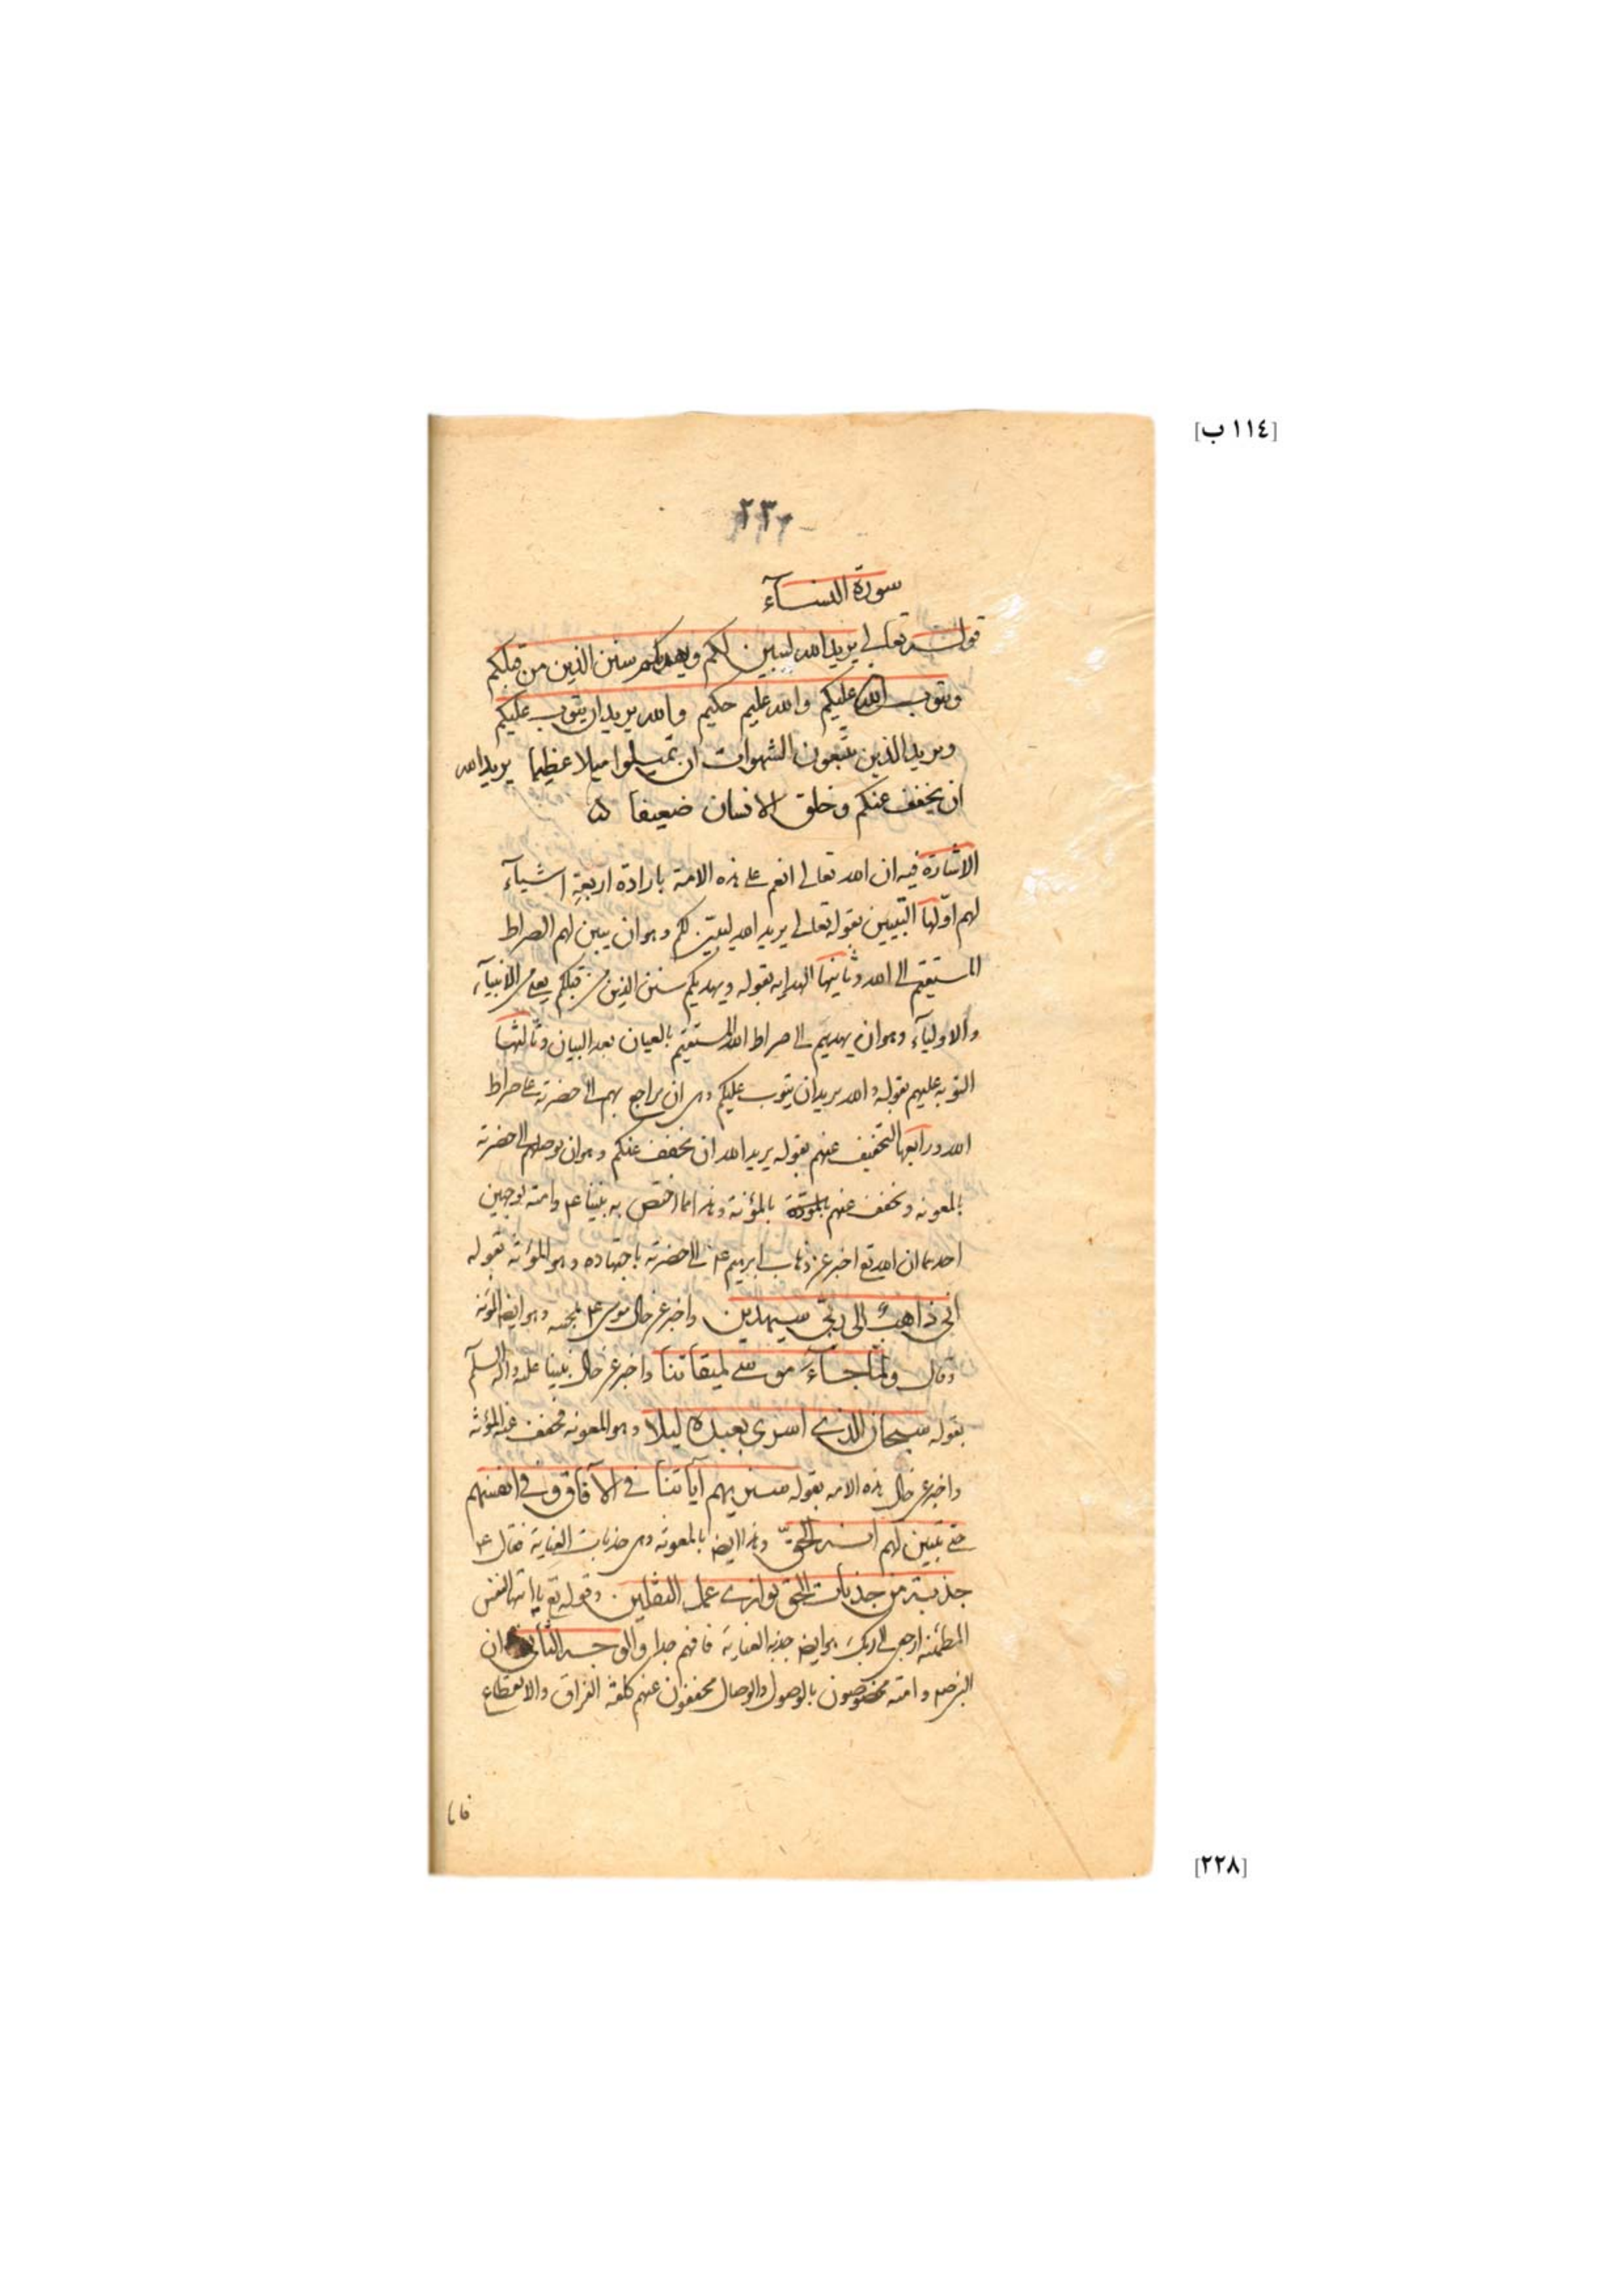 [١١٤ ب]
٢٣٠
سورة النسآء
قوله تعالى يريد الله ليبين لكم ويهديكم سنن الذين من قبلكم
ويتوب الله عليكم والله عليم حكيم والله يريد ان يتوب عليكم
ويريد الذين يتبعون الشهوات ان تميلوا ميلا عظيما يريد الله
ان يخفف عنكم وخلق الانسان ضعيفا
الاشارة فيه ان الله تعالى انعم على هذه الامة بارادة اربعة اشيآء
لهم اوّلها التبيين بقوله تعالى يريد الله ليبين لكم وهو ان يبين لهم الصراط
المستقيم الى الله وثانيها الهداية بقوله ويهديكم سنن الذين من قبلكم يعنى من الانبيآء
والاوليآء وهو ان يهديهم الى صراط الله المستقيم بالعيان بعد البيان وثالثها
التوبة عليهم بقوله والله يريد ان يتوب عليكم وهى ان يراجع بهم الى حضرته على صراط
الله ورابعها التخفيف عنهم بقوله يريد الله ان يخفف عنكم وهو ان يوصلهم الى حضرته
بالمعونة ويخفف عنهم بالمؤنة وهذا مما اختص به نبينا عم وامته بوجهين
احدهما ان الله تع اخبر عن ذهاب ابرهيم عم الى حضرته باجتهاده وهو المؤنة بقوله
انى ذاهبٌ الى ربّى سيهدين واخبر عن حال موسى عم بمجيئه وهو ايضا المؤنة
وقال ولمّا جآءَ موسى لميقاتنا واخبر عن حال نبينا عليه وآله السلم
بقوله سبحان الذى اسرى بعبده ليلا وهو المعونة فخفف عنه المؤنة
واخبر عن حال هذه الامة بقوله سنريهم آياتنا فى الآفاق وفى انفسهم
حتى يتبين لهم انه الحقّ وهذا ايضا بالمعونة وهى جذبات العناية فقال عم
جذبة من جذبات الحق توازى عمل الثقلين وقوله تع يا ايتها النفس
المطمئنة ارجعى الى ربكِ هو ايضا جذبة العناية فافهم جدا والوجه الثانى ان
النبى صم وامته مخصوصون بالوصول والوصال مخففون عنهم كلفة الفراق والانقطاع
فاما
[٢٢٨]